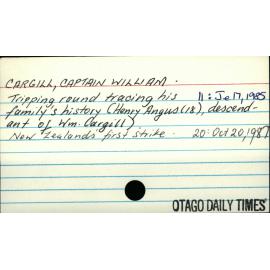 CARGILL, CAPTAIN WILLIAM.
Tripping round tracing his 11: Je 17, 1985
family's history (Henry Angus (18), descend-
ant of Wm. Cargill)
New Zealand's first strike. 20: Oct 20, 198
OTAGO DAILY TIMES